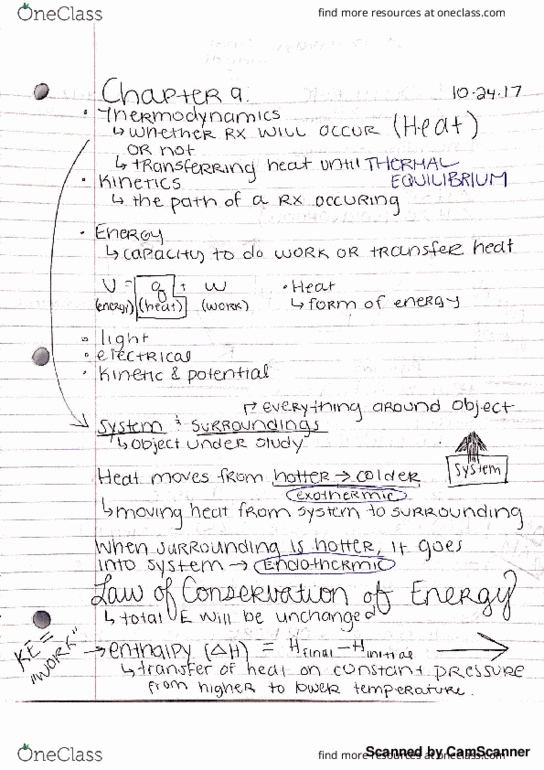 OneClass
find more resources at oneclass.com
Chapter 9.
10.24.17
• Thermodynamics
↳ whether RX will occur (Heat)
or not
↳ transferring heat until THERMAL EQUILIBRIUM
• Kinetics
↳ the path of a RX occuring
• Energy
↳ capacity to do work or transfer heat
U = q + w
(energy) (heat) (work)
• Heat
↳ form of energy
• light
• electrical
• kinetic & potential
↱ everything around object
System & Surroundings
↳ object under study
System
Heat moves from hotter → colder
exothermic
↳ moving heat from system to surrounding
When surrounding is hotter, it goes
into system → Endothermic
Law of Conservation of Energy
↳ total E will be unchanged
KE = "WORK"
→ enthalpy (ΔH) = Hfinal - Hinitial
↳ transfer of heat on constant pressure
from higher to lower temperature.
OneClass
find more resources at oneclass.com
Scanned by CamScanner